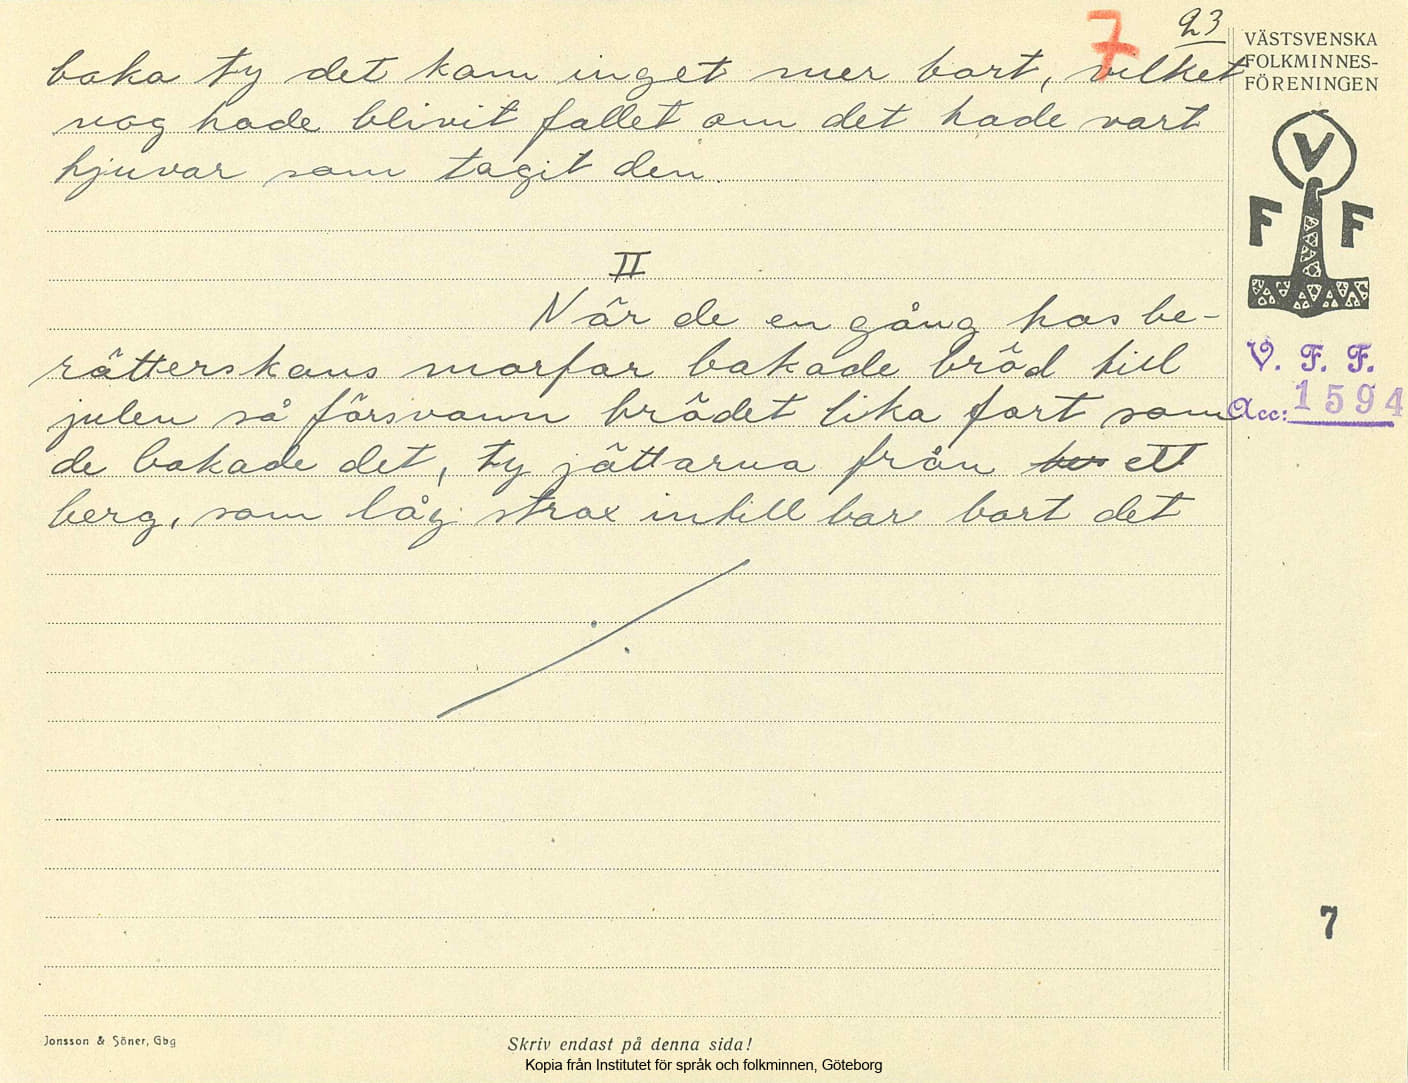 23
7
baka ty det kom inget mer bort, vilket
nog hade blivit fallet om det hade vart
tjuvar som tagit den.
II
När de en gång hos be-
rätterskans morfar bakade bröd till
julen så försvann brödet lika fort som
de bakade det, ty jättarna från ett
berg, som låg strax intill bar bort det
VÄSTSVENSKA
FOLKMINNES-
FÖRENINGEN
V
F F
V. F. F.
Acc: 1594
7
Jonsson & Söner, Gbg
Skriv endast på denna sida!
Kopia från Institutet för språk och folkminnen, Göteborg